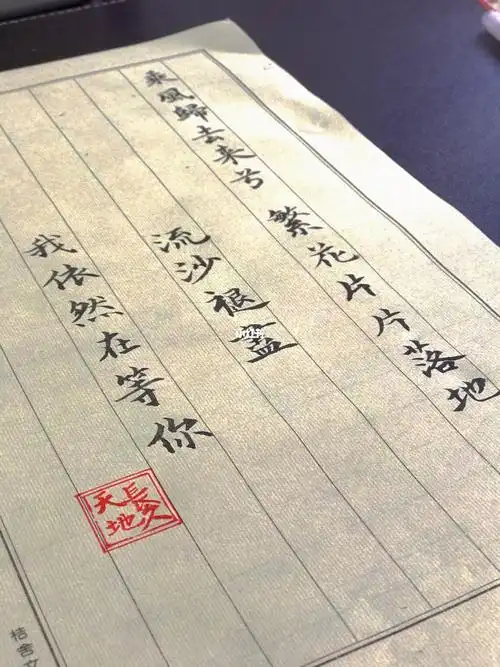 乘風歸去来兮 繁花片片落地
流沙褪蓋
我依然在等你
長久
天地
桔舍文